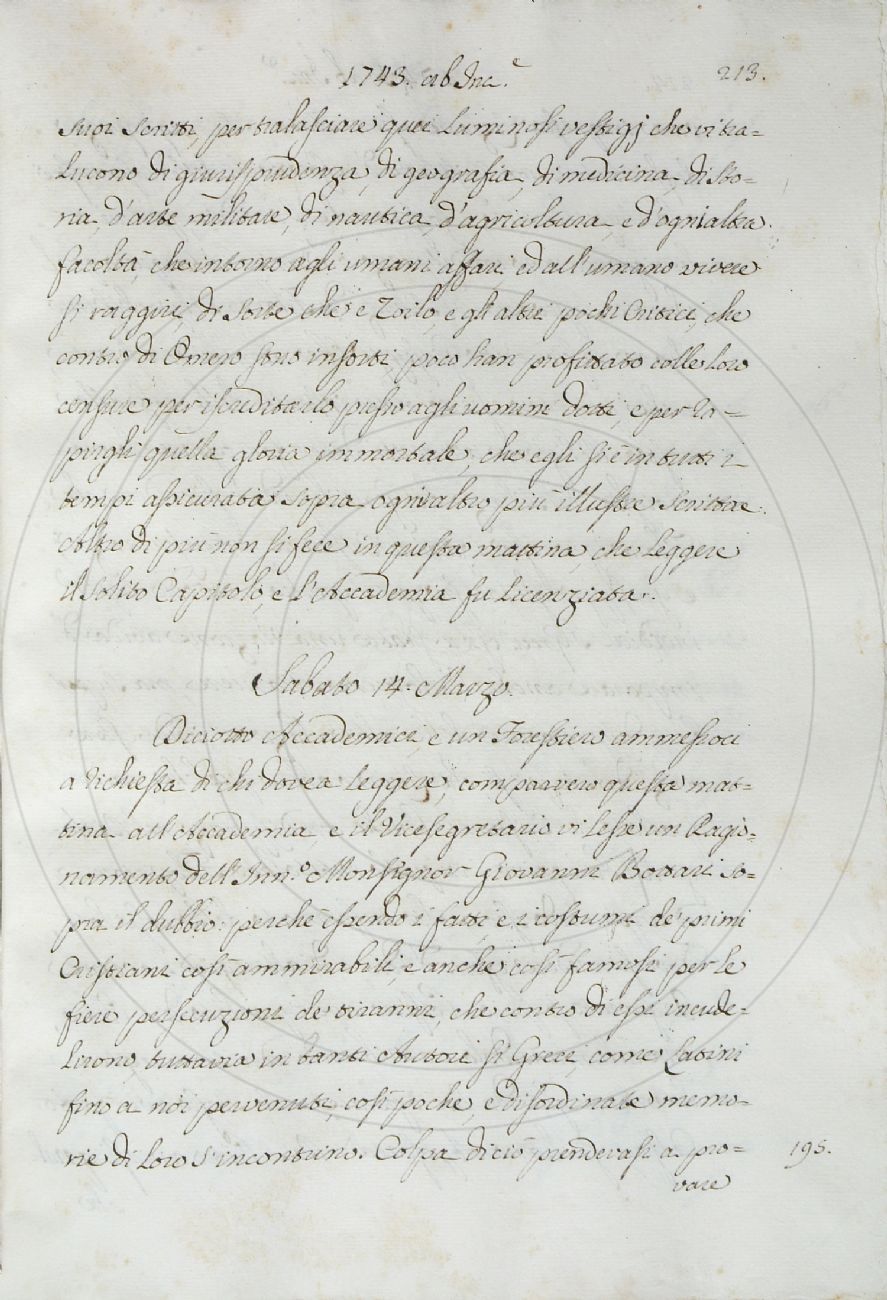 1743. ab Inc.e
213.
suoi scritti, per tralasciare quei luminosi vestigj che vi tra=
lucono di giurisprudenza, di geografia, di medicina, di sto=
ria, d'arte militare, di nautica, d'agricoltura, e d'ogni altra
facoltà, che intorno agli umani affari, ed all'umano vivere
si raggiri; di sorte che e Zoilo, e gli altri pochi Critici, che
contro di Omero sono insorti poco han profittato colle loro
censure per iscreditarlo presso agli uomini dotti, e per ra=
pirgli quella gloria immortale, che egli si è in tutti i
tempi assicurata sopra ogni altro più illustre scrittore.
Altro di più non si fece in questa mattina, che leggere
il solito Capitolo, e l'Accademia fu licenziata.
Sabato 14. Marzo.
Diciotto Accademici, e un Forestiero ammessoci
a richiesta di chi dovea leggere, comparvero questa mat=
tina all'Accademia, e il Vicesegretario vi lesse un Ragio=
namento dell'Inn.o Monsignor Giovanni Bottari so=
pra il dubbio: perchè essendo i fatti, e i costumi de' primi
Cristiani così ammirabili, e anche così famosi per le
fiere persecuzioni de' tiranni, che contro di essi incrude=
lirono, tuttavia in tanti Autori sì Greci, come Latini
fino a noi pervenuti, così poche, e disordinate memo=
rie di loro s'incontrino. Colpa di ciò prendevasi a pro=
195.
vare